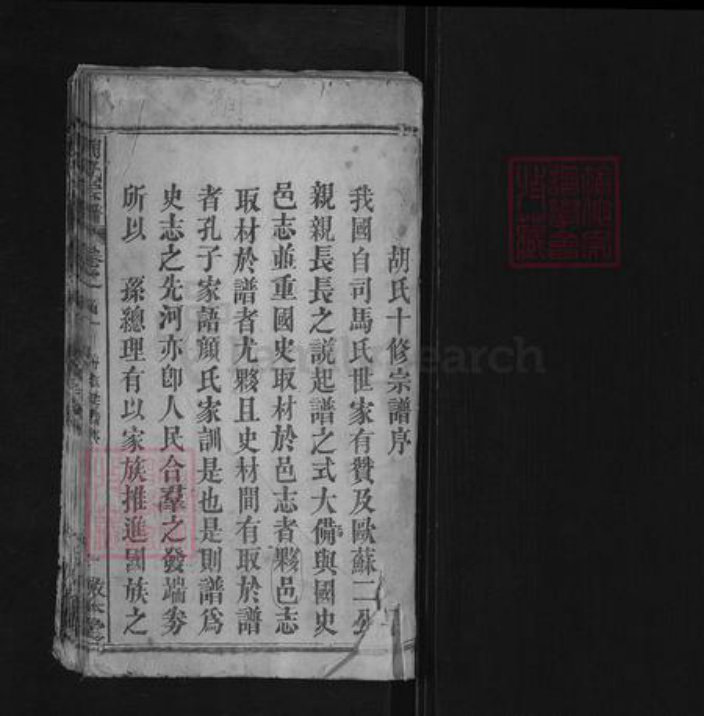 胡氏十修宗譜序
我國自司馬氏世家有贊及歐蘇二公
親親長長之說起譜之式大備與國史
邑志並重國史取材於邑志者夥邑志
取材於譜者尤夥且史材間有取於譜
者孔子家語顏氏家訓是也是則譜爲
史志之先河亦卽人民合羣之發端
所以　孫總理有以家族推進國族之